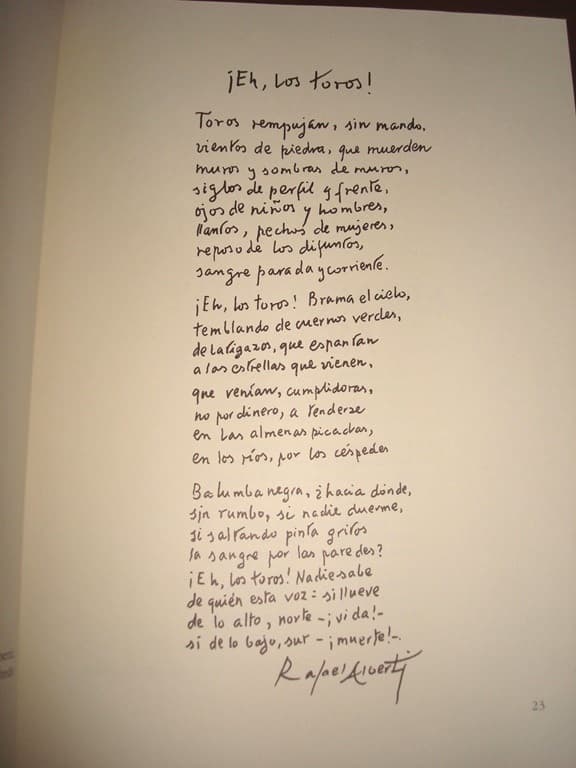 ¡Eh, los toros!
Toros rempujan, sin mando,
vientos de piedra, que muerden
muros y sombras de muros,
siglos de perfil y frente,
ojos de niños y hombres,
llantos, pechos de mujeres,
reposo de los difuntos,
sangre parada y corriente.
¡Eh, los toros! Brama el cielo,
temblando de cuernos verdes,
de latigazos, que espantan
a las estrellas que vienen,
que venían, cumplidoras,
no por dinero, a tenderse
en las almenas picadas,
en los ríos, por los céspedes
Balumba negra, ¿hacia dónde,
sin rumbo, si nadie duerme,
si saltando pinta gritos
la sangre por las paredes?
¡Eh, los toros! Nadie sabe
de quién esta voz: si llueve
de lo alto, norte -¡vida!-
si de lo bajo, sur -¡muerte!-.
Rafael Alberti
23